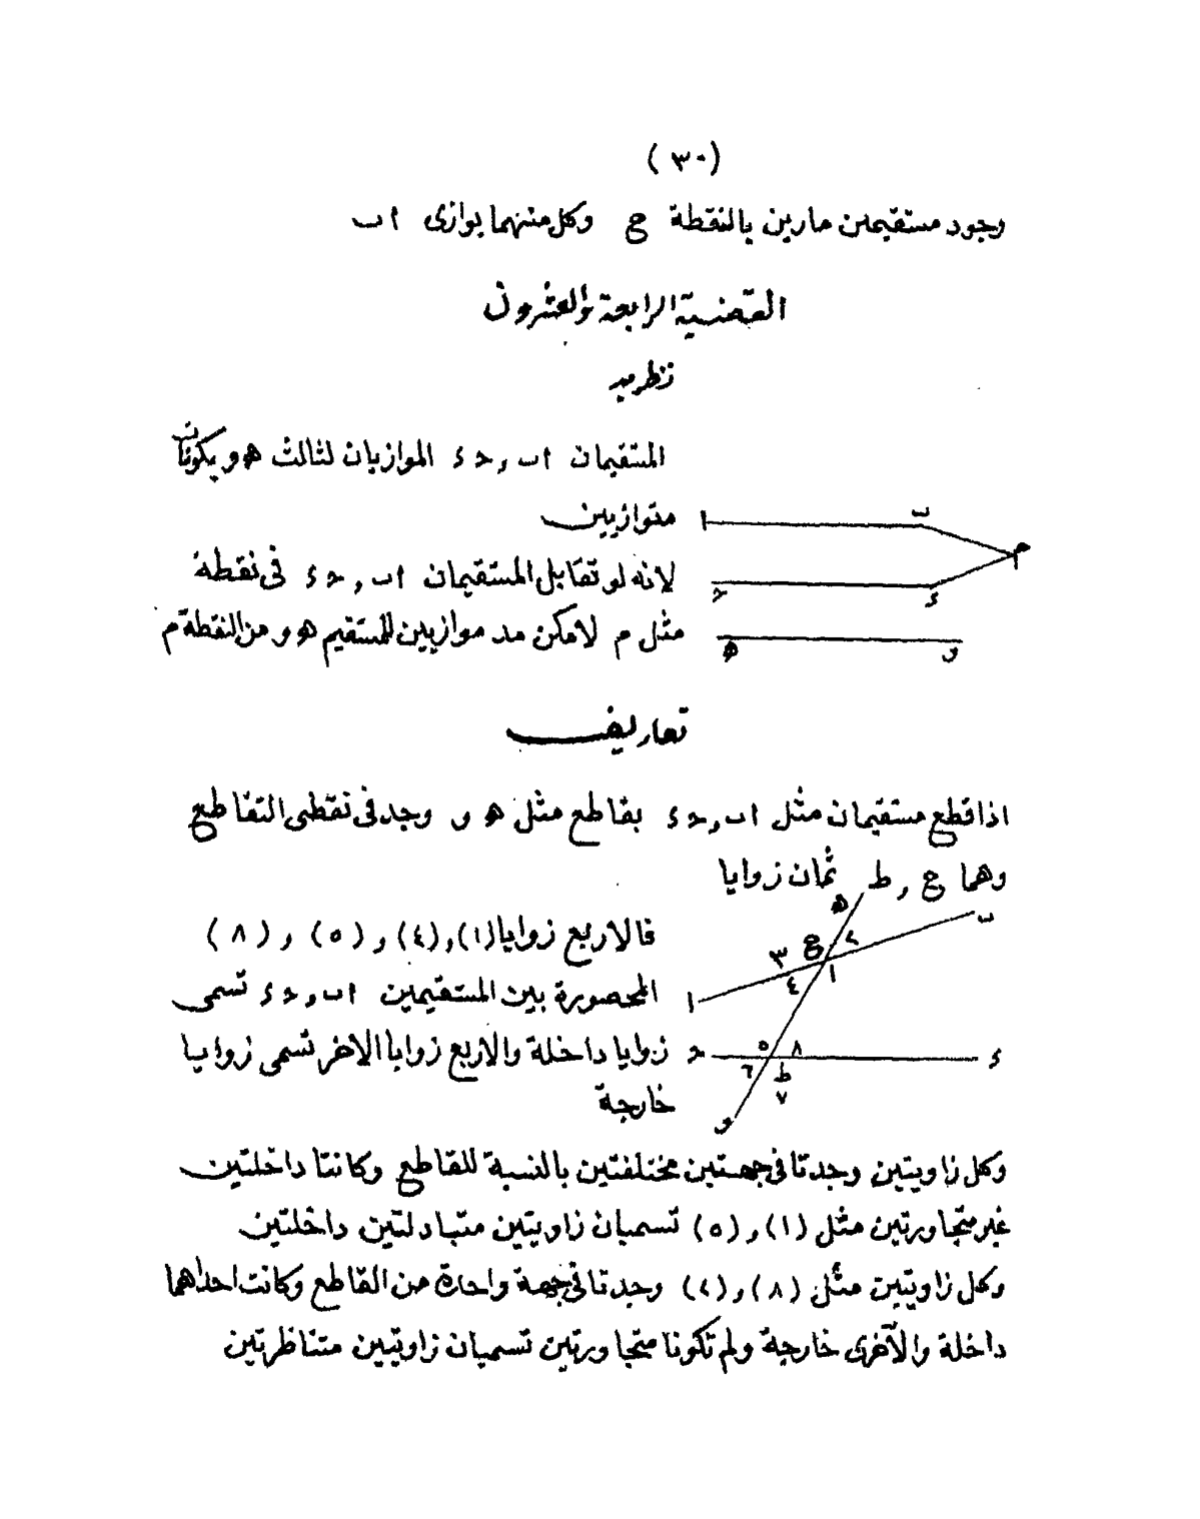 (٣٠)
وجود مستقيمين مارين بالنقطة ج وكل منهما يوازى اب
القضية الرابعة والعشرون
نظريه
المستقيمان اب , حء الموازيان لثالث هو يكونان
متوازيين
ا ب م
لانه لو تقابل المستقيمان اب , حء فى نقطة
ح ء
مثل م لامكن مد موازيين للمستقيم هو من النقطة م
ه و
تعاريف
اذا قطع مستقيمان مثل اب , حء بقاطع مثل ه و وجد فى نقطى التقاطع
وهما ع , ط ثمان زوايا
ه ب
فالاربع زوايا (١) , (٤) , (٥) , (٨)
٣ ع ٢
٤ ١
المحصورة بين المستقيمين اب , حء تسمى
ا
زوايا داخلة والاربع زوايا الاخر تسمى زوايا
ح ٥ ٨ ء
٦ ط
٧
خارجة
و
وكل زاويتين وجدتا فى جهتين مختلفتين بالنسبة للقاطع وكانتا داخلتين
غير متجاورتين مثل (١) , (٥) تسميان زاويتين متبادلتين داخلتين
وكل زاويتين مثل (٨) , (٢) وجدتا فى جهة واحدة من القاطع وكانت احداهما
داخلة والآخرى خارجة ولم تكونا متجاورتين تسميان زاويتين متناظرتين